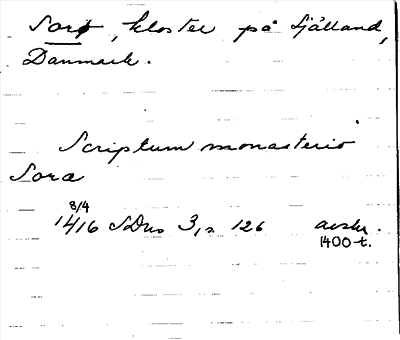 Sorø, kloster på Själland,
Danmark.
Scriptum monasterio
Sora
8/4
1416 SDns 3, s. 126 avskr.
1400-t.